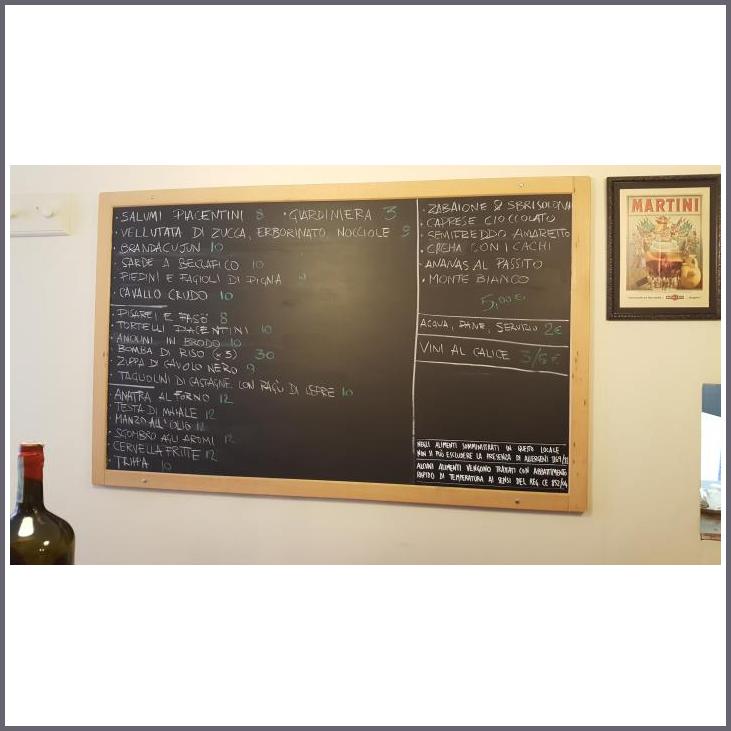 · SALUMI PIACENTINI 8 · GIARDINIERA 3
· VELLUTATA DI ZUCCA, ERBORINATO, NOCCIOLE 9
· BRANDACUJUN 10
· SARDE A BECCAFICO 10
· PIEDINI E FAGIOLI DI PIGNA
· CAVALLO CRUDO 10
· PISAREI E FASÖ 8
· TORTELLI PIACENTINI 10
· ANOLINI IN BRODO 10
· BOMBA DI RISO (x5) 30
· ZUPPA DI CAVOLO NERO 9
· TAGLIOLINI DI CASTAGNE CON RAGÙ DI LEPRE 10
· ANATRA AL FORNO 12
· TESTA DI MAIALE 12
· MANZO ALL'OLIO 12
· SGOMBRO AGLI AROMI 12
· CERVELLA FRITTE 12
· TRIPPA 10
· ZABAIONE & SBRISOLONA
· CAPRESE CIOCCOLATO
· SEMIFREDDO AMARETTO
· CREMA CON I CACHI
· ANANAS AL PASSITO
· MONTE BIANCO
5,00 €
ACQUA, PANE, SERVIZIO 2€
VINI AL CALICE 3/5 €
NEGLI ALIMENTI SOMMINISTRATI IN QUESTO LOCALE
NON SI PUÒ ESCLUDERE LA PRESENZA DI ALLERGENI 1169/11
ALCUNI ALIMENTI VENGONO TRATTATI CON ABBATTIMENTO
RAPIDO DI TEMPERATURA AI SENSI DEL REG. CE 852/04
MARTINI